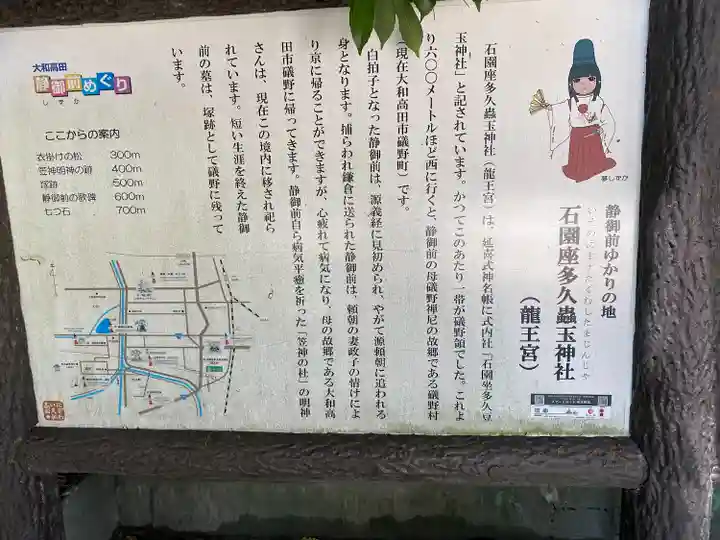 静御前ゆかりの地
いそのにますたくむしたまじんじゃ
石園座多久蟲玉神社
(龍王宮)
夢しずか
石園座多久蟲玉神社(龍王宮)は、延喜式神名帳に式内社「石園坐多久豆
玉神社」と記されています。かつてこのあたり一帯が磯野領でした。これよ
り六〇〇メートルほど西に行くと、静御前の母磯野禅尼の故郷である磯野村
(現在大和高田市磯野町)です。
白拍子となった静御前は、源義経に見初められ、やがて源頼朝に追われる
身となります。捕らわれ鎌倉に送られた静御前は、頼朝の妻政子の情けによ
り京に帰ることができますが、心疲れて病気になり、母の故郷である大和高
田市磯野に帰ってきます。静御前自ら病気平癒を祈った「笠神の杜」の明神
さんは、現在この境内に移され祀ら
れています。短い生涯を終えた静御
前の墓は、塚跡として磯野に残って
います。
大和高田
静御前めぐり
しずか
ここからの案内
衣掛けの松 300m
笠神明神の跡 400m
塚跡 500m
静御前の歌碑 600m
七つ石 700m